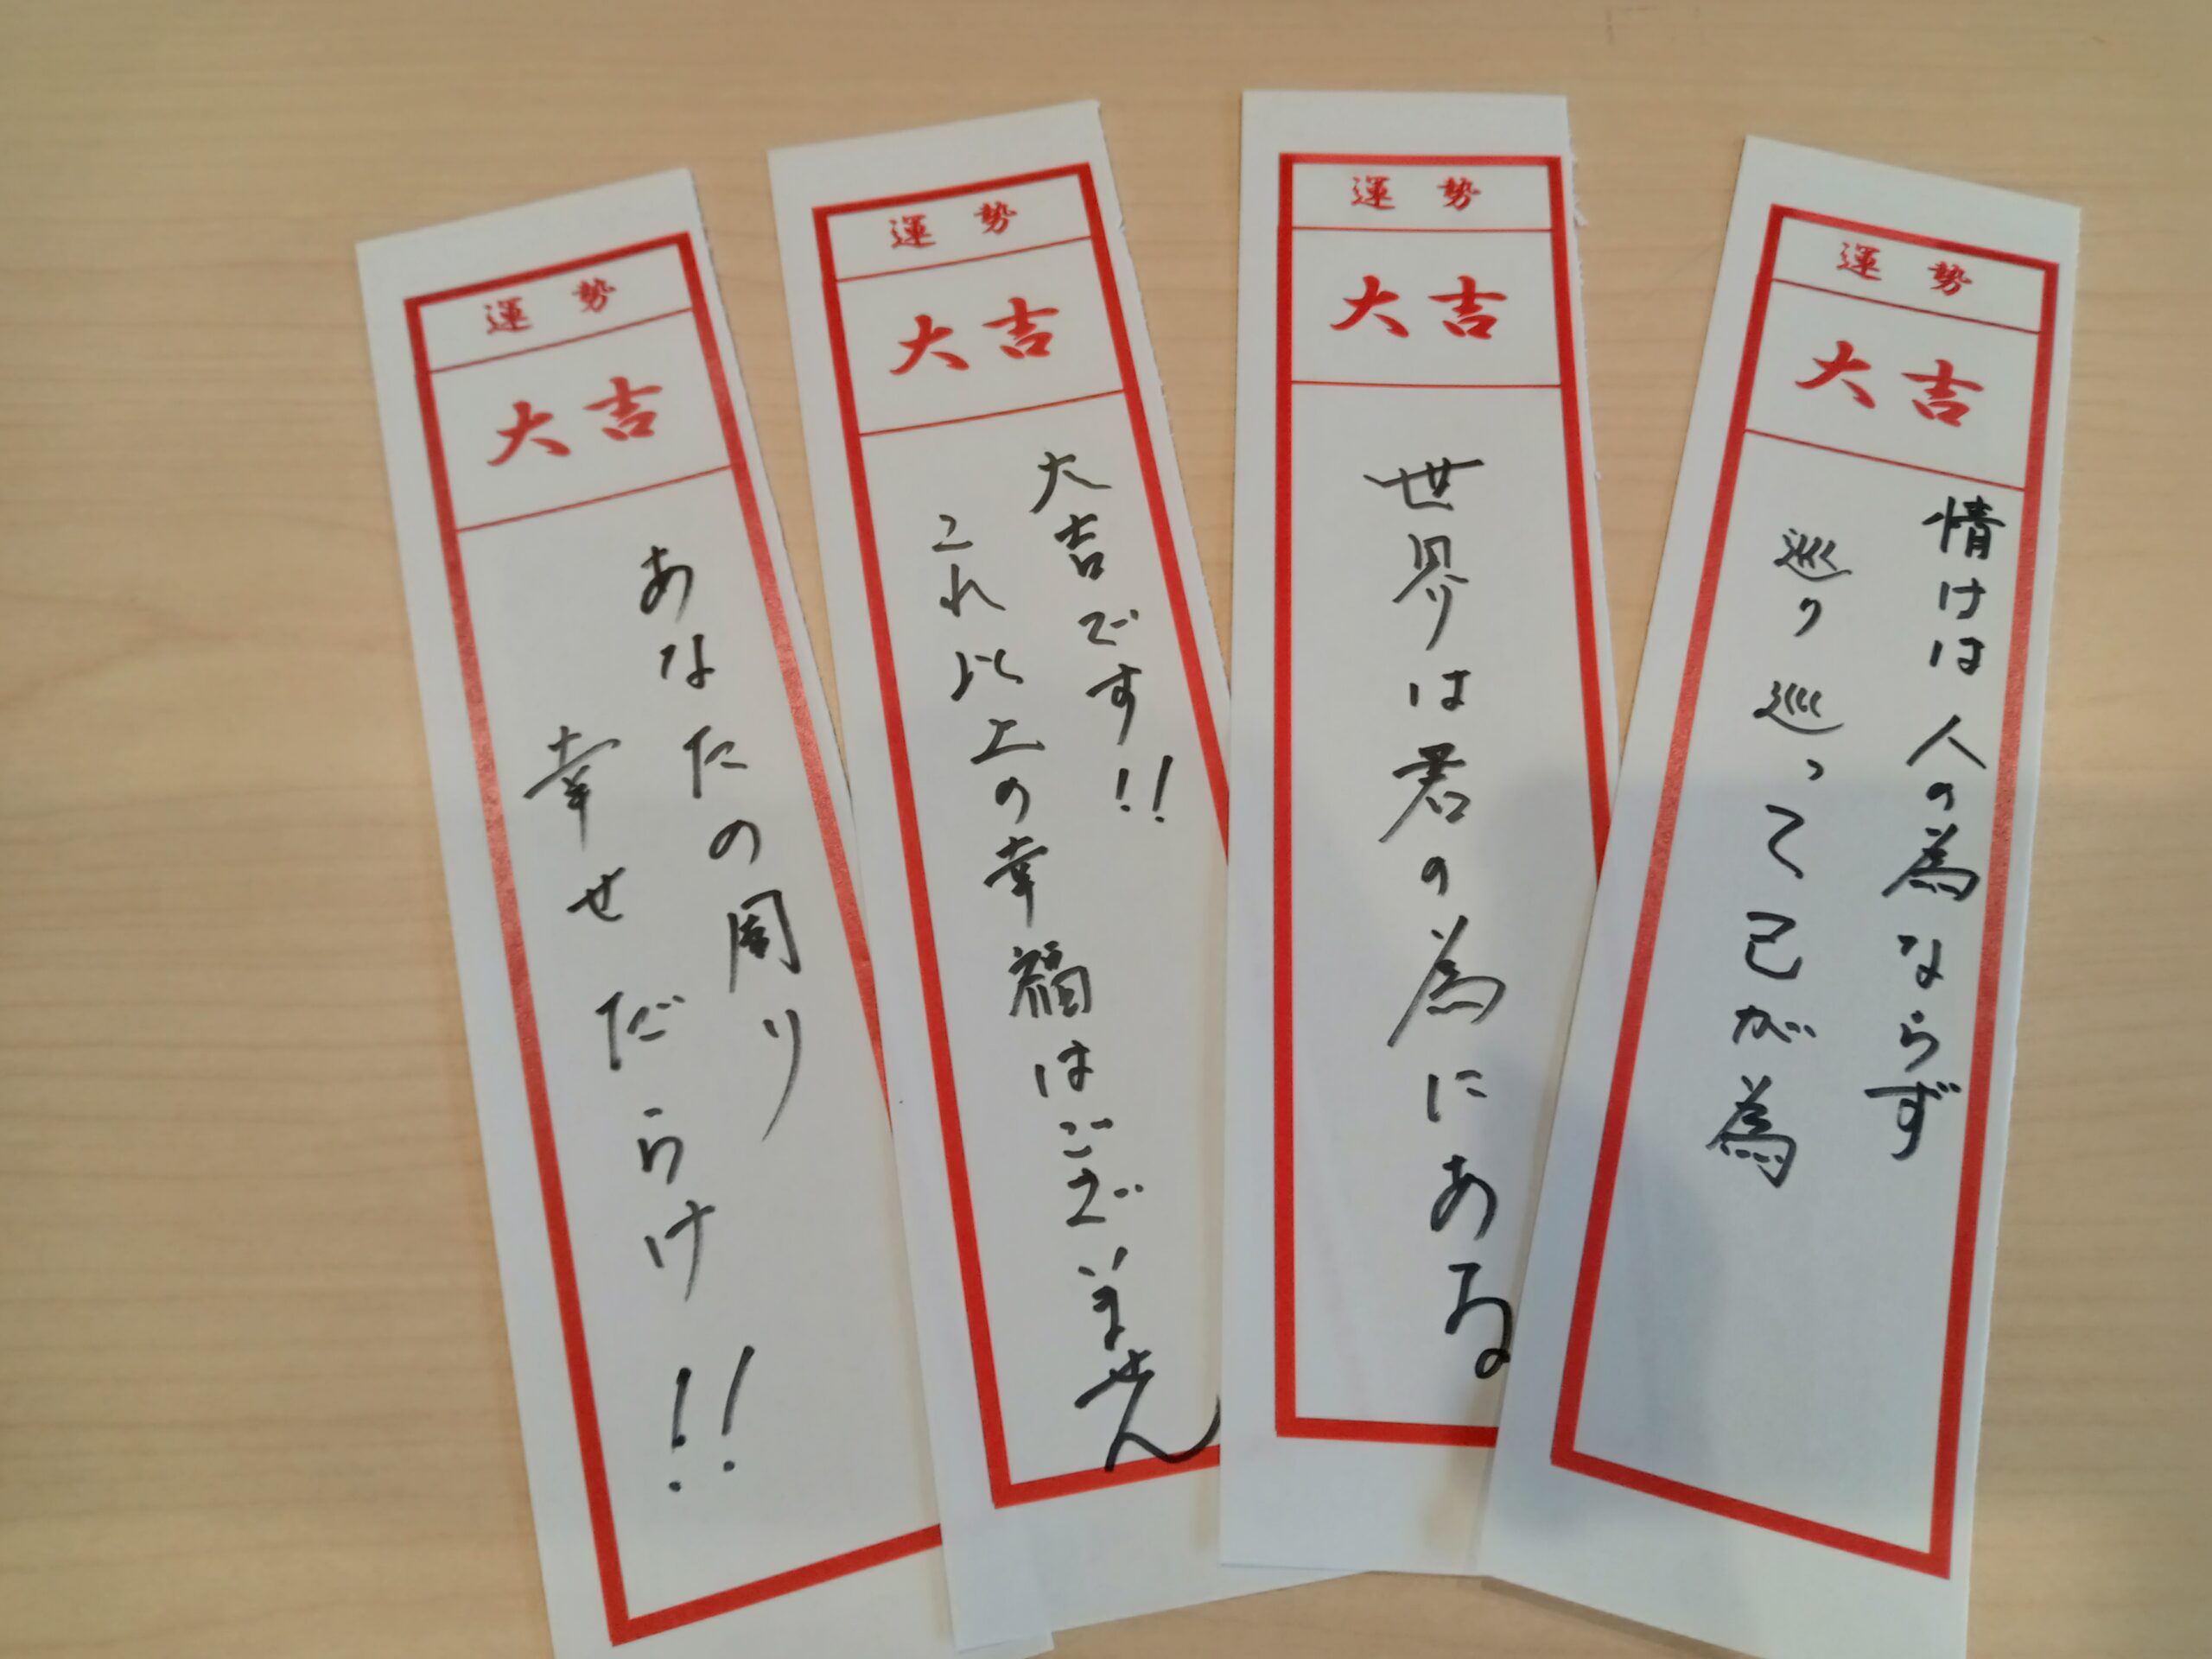 運勢
大吉
あなたの周り
幸せだらけ!!
運勢
大吉
大吉です!!
これ以上の幸福はございません
運勢
大吉
世界は君の為にある
運勢
大吉
情けは人の為ならず
巡り巡って己が為